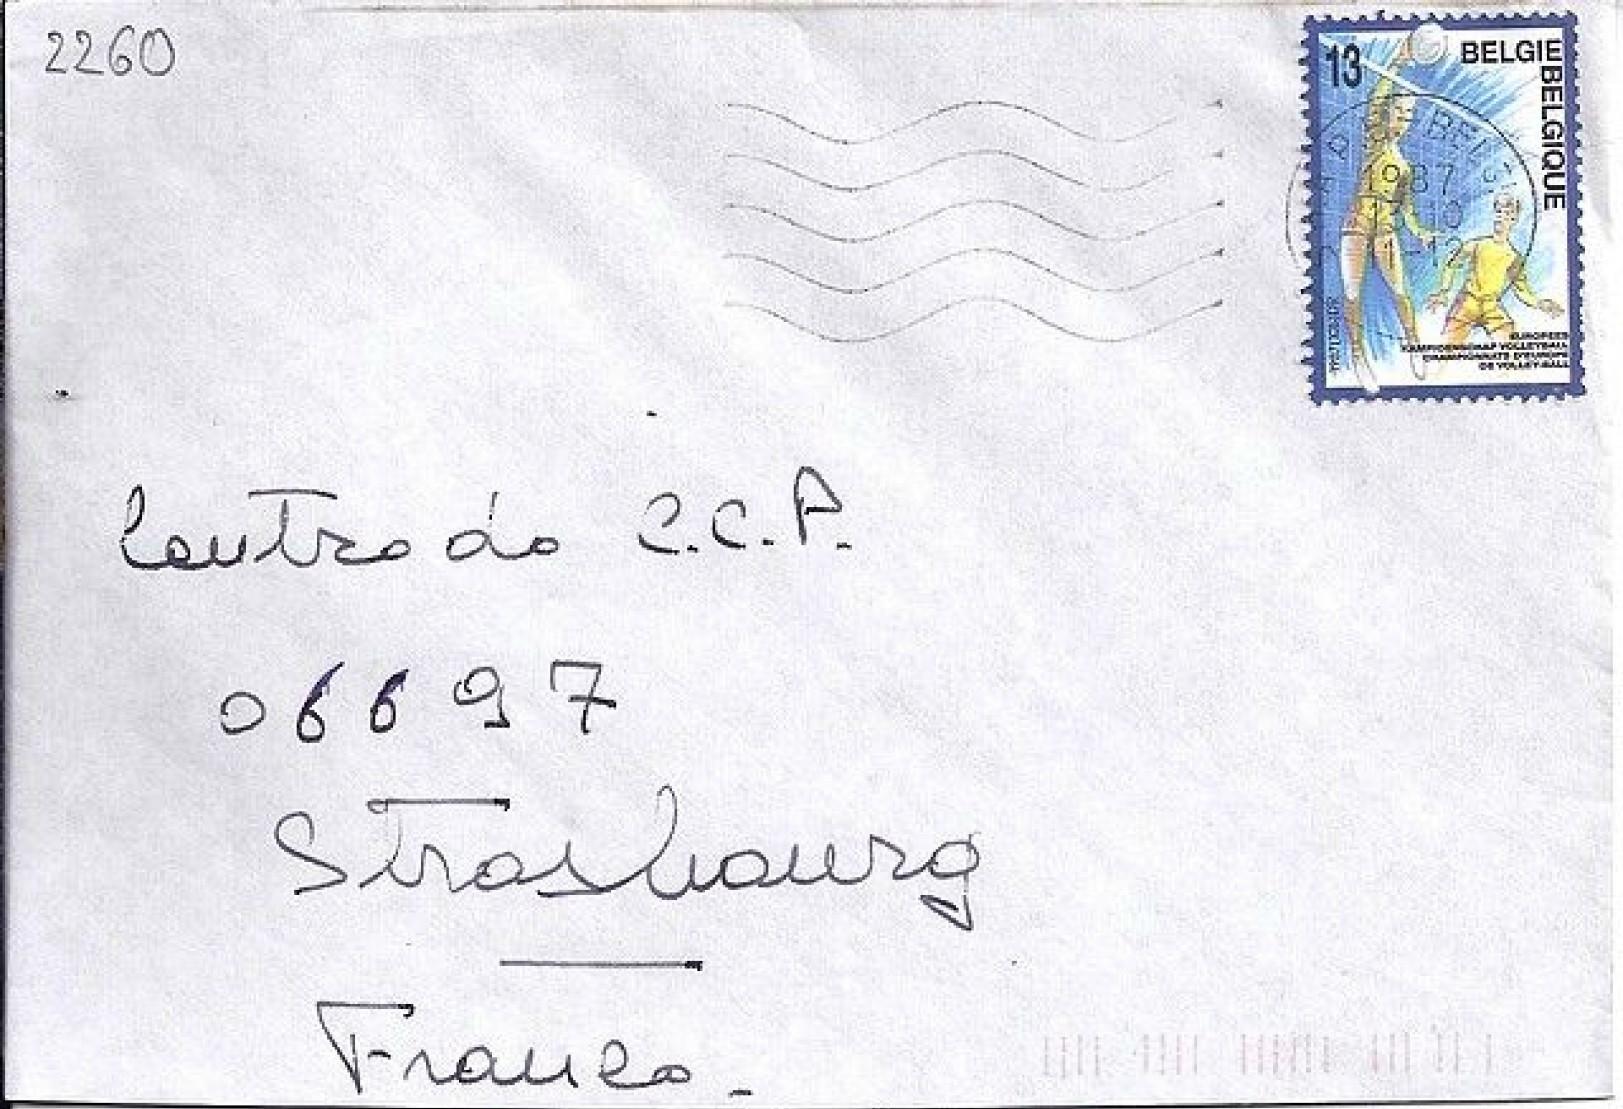 2260
13
BELGIE
BELGIQUE
1987
10
1-12
EUROPEES
KAMPIOENSCHAP VOLLEYBALL
CHAMPIONNATS D'EUROPE
DE VOLLEY-BALL
Centre de C.C.P.
06697
Strasbourg
France.